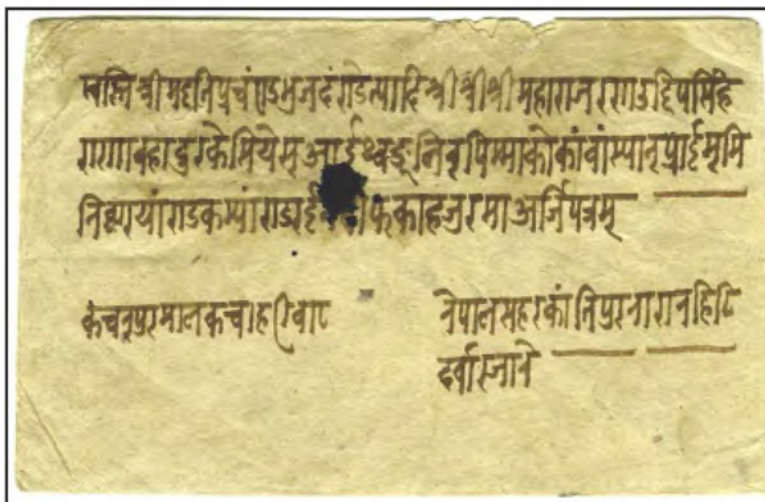 स्वस्तिश्रीमदतिप्रचंण्डभुजदंण्डेत्यादिश्रीश्रीश्रीमहाराजरणउद्दिपसिंह
राणाबहादुरकेसियेस्आईथ्वङ्लिनपिम्माकोकांवांस्यान्प्राईम्मि
निष्टरयांण्डकम्यांण्डर काहजुरमाअर्जिपत्रम्
कंचनपुरमालकचाहरिबाट नेपालसहरकांतिपुरनारानहिटि
दर्वारजाने